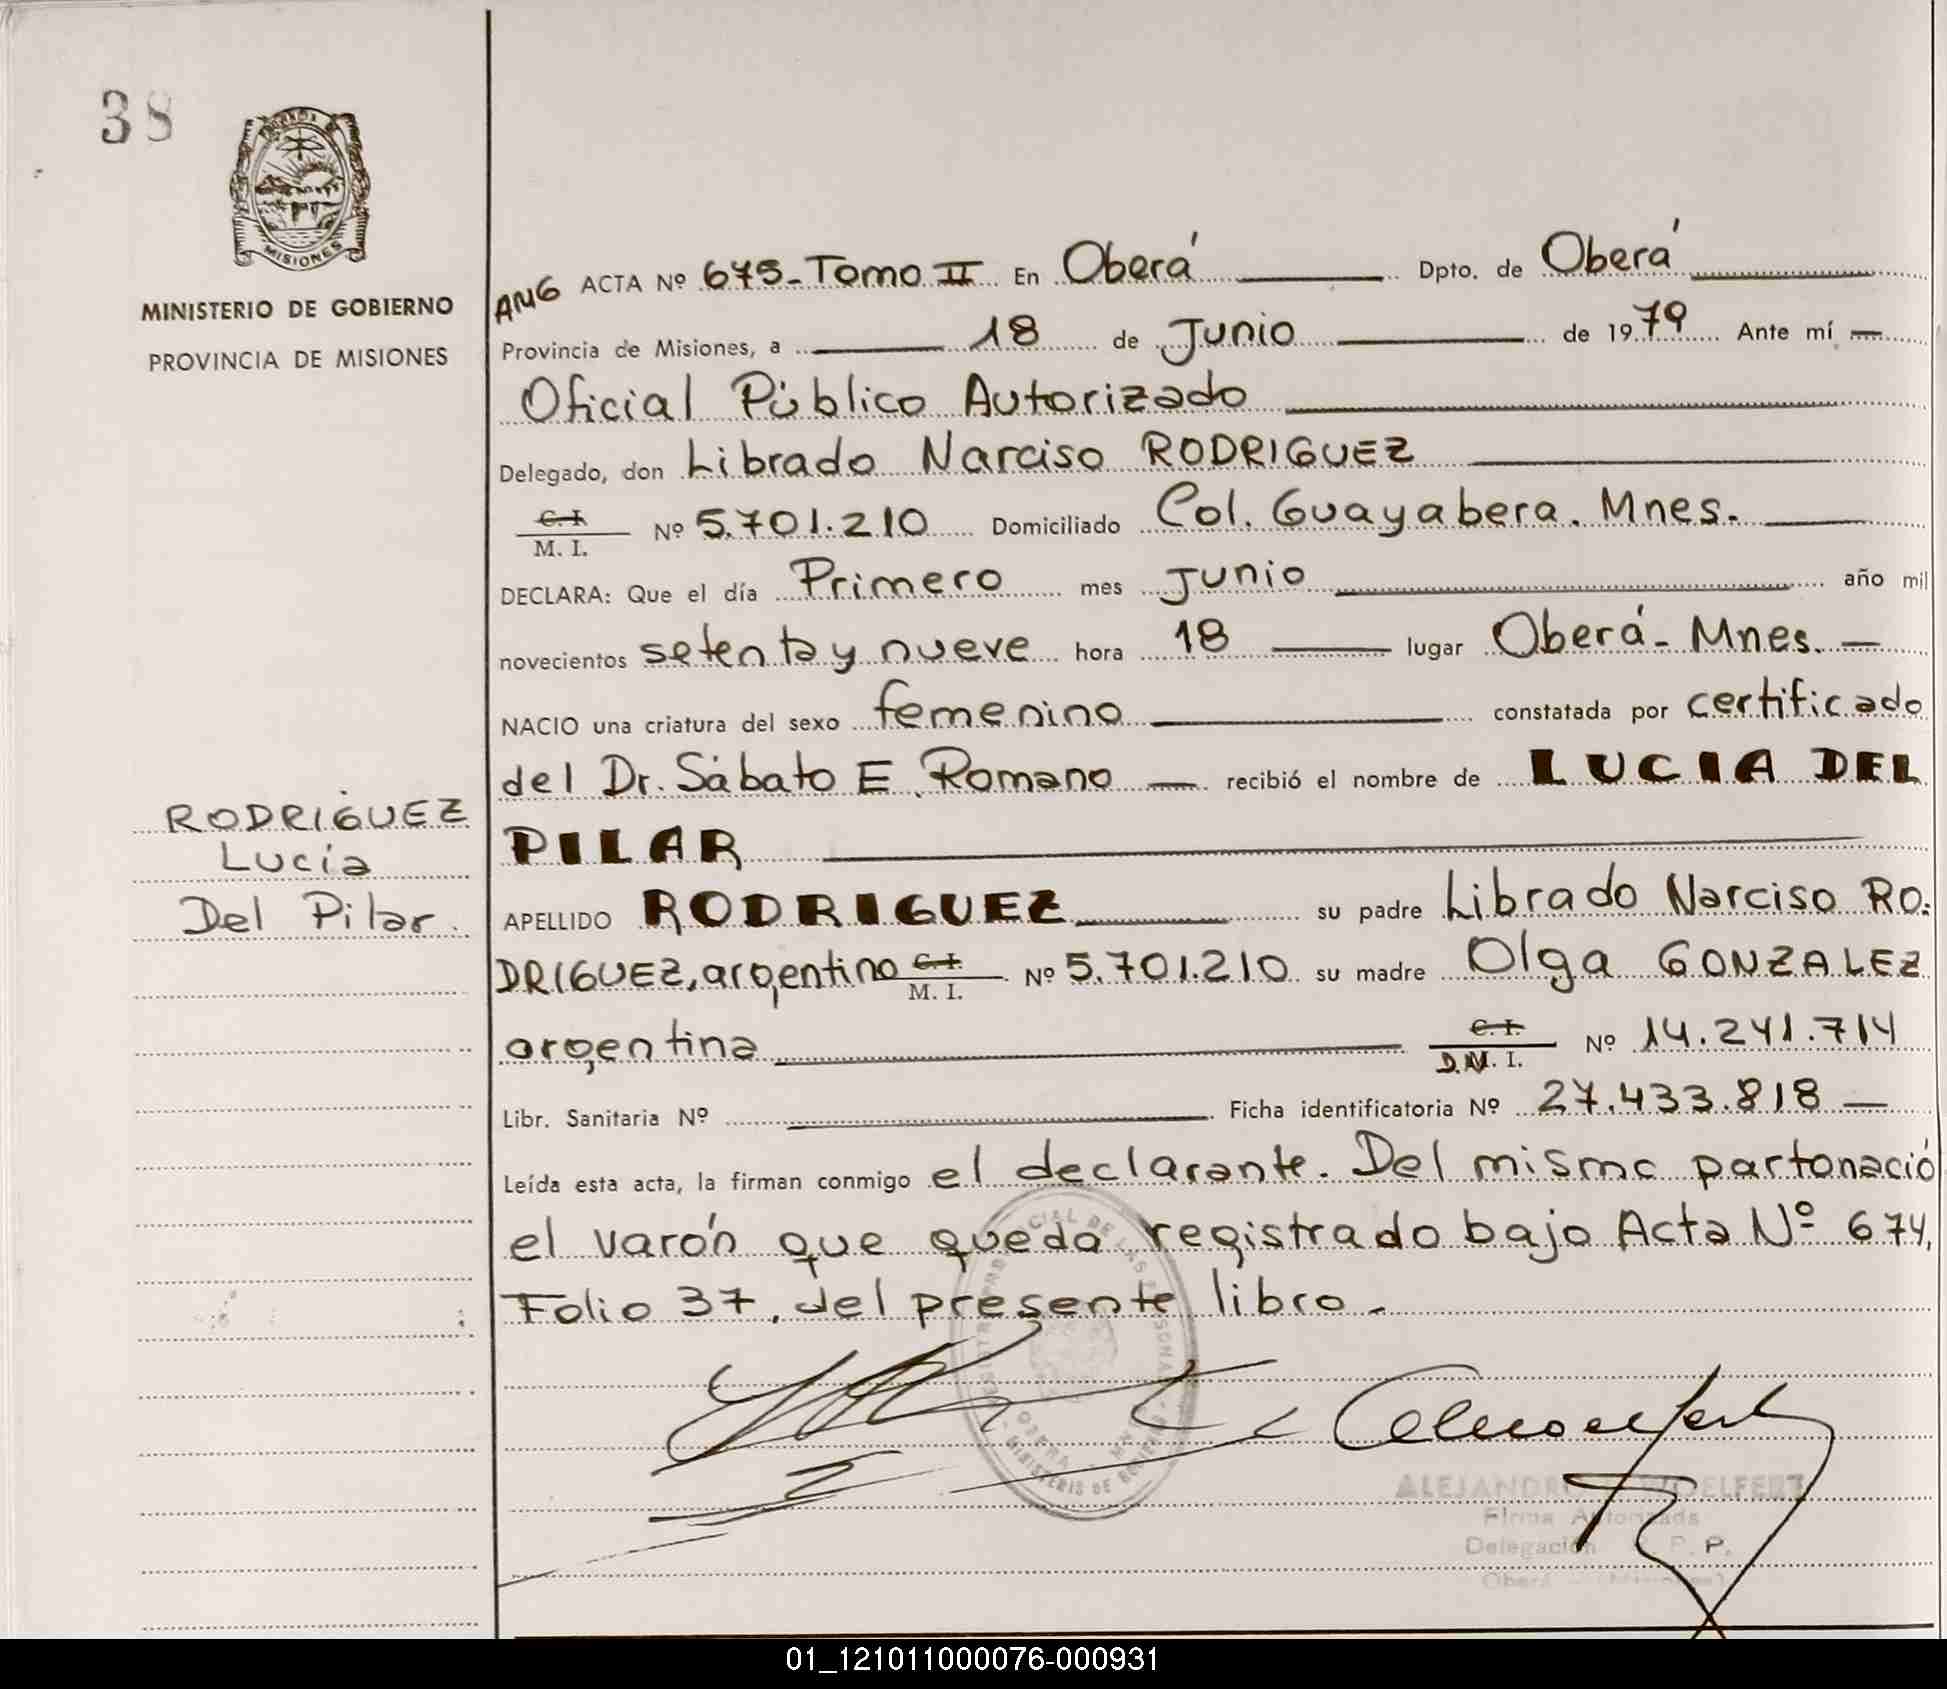 38
MISIONES
MINISTERIO DE GOBIERNO
PROVINCIA DE MISIONES
RODRIGUEZ
Lucía
Del Pilar.
ANG ACTA Nº 675-Tomo II En Oberá Dpto. de Oberá
Provincia de Misiones, a 18 de Junio de 1979 Ante mí
Oficial Público Autorizado
Delegado, don Librado Narciso RODRIGUEZ
C. I.
M. I. Nº 5.701.210 Domiciliado Col. Guayabera. Mnes.
DECLARA: Que el día Primero mes Junio año mil
novecientos setenta y nueve hora 18 lugar Oberá - Mnes.
NACIO una criatura del sexo femenino constatada por certificado
del Dr. Sábato E. Romano recibió el nombre de LUCIA DEL
PILAR
APELLIDO RODRIGUEZ su padre Librado Narciso RO-
DRIGUEZ, argentino C. I. M. I. Nº 5.701.210 su madre Olga GONZALEZ
argentina C. I. D.N. I. Nº 14.241.714
Libr. Sanitaria Nº Ficha identificatoria Nº 27.433.818
Leída esta acta, la firman conmigo el declarante. Del mismo parto nació
el varón que queda registrado bajo Acta Nº 674,
Folio 37, del presente libro.
ALEJANDRO WOELFERT
Firma Autorizada
Delegación R. P. P.
Oberá - (Misiones)
01_121011000076-000931